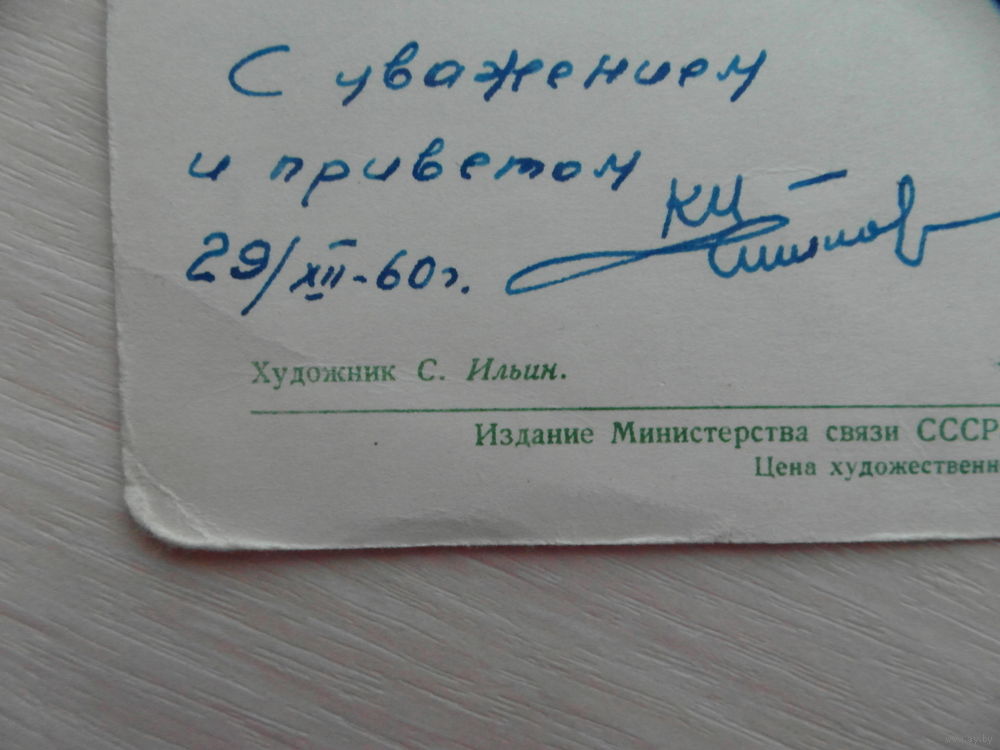 С уважением
и приветом
29/XII-60г.
Художник С. Ильин.
Издание Министерства связи СССР
Цена художественн